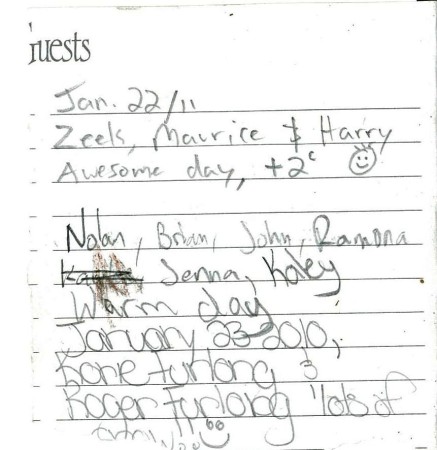 uests
Jan. 22/11
Zeels, Maurice & Harry
Awesome day, +2c
Nolan, Brian, John, Ramona
Jenna, Koley
Warm day
January 23 2010,
Furlong &
Roger Furlong "lots of